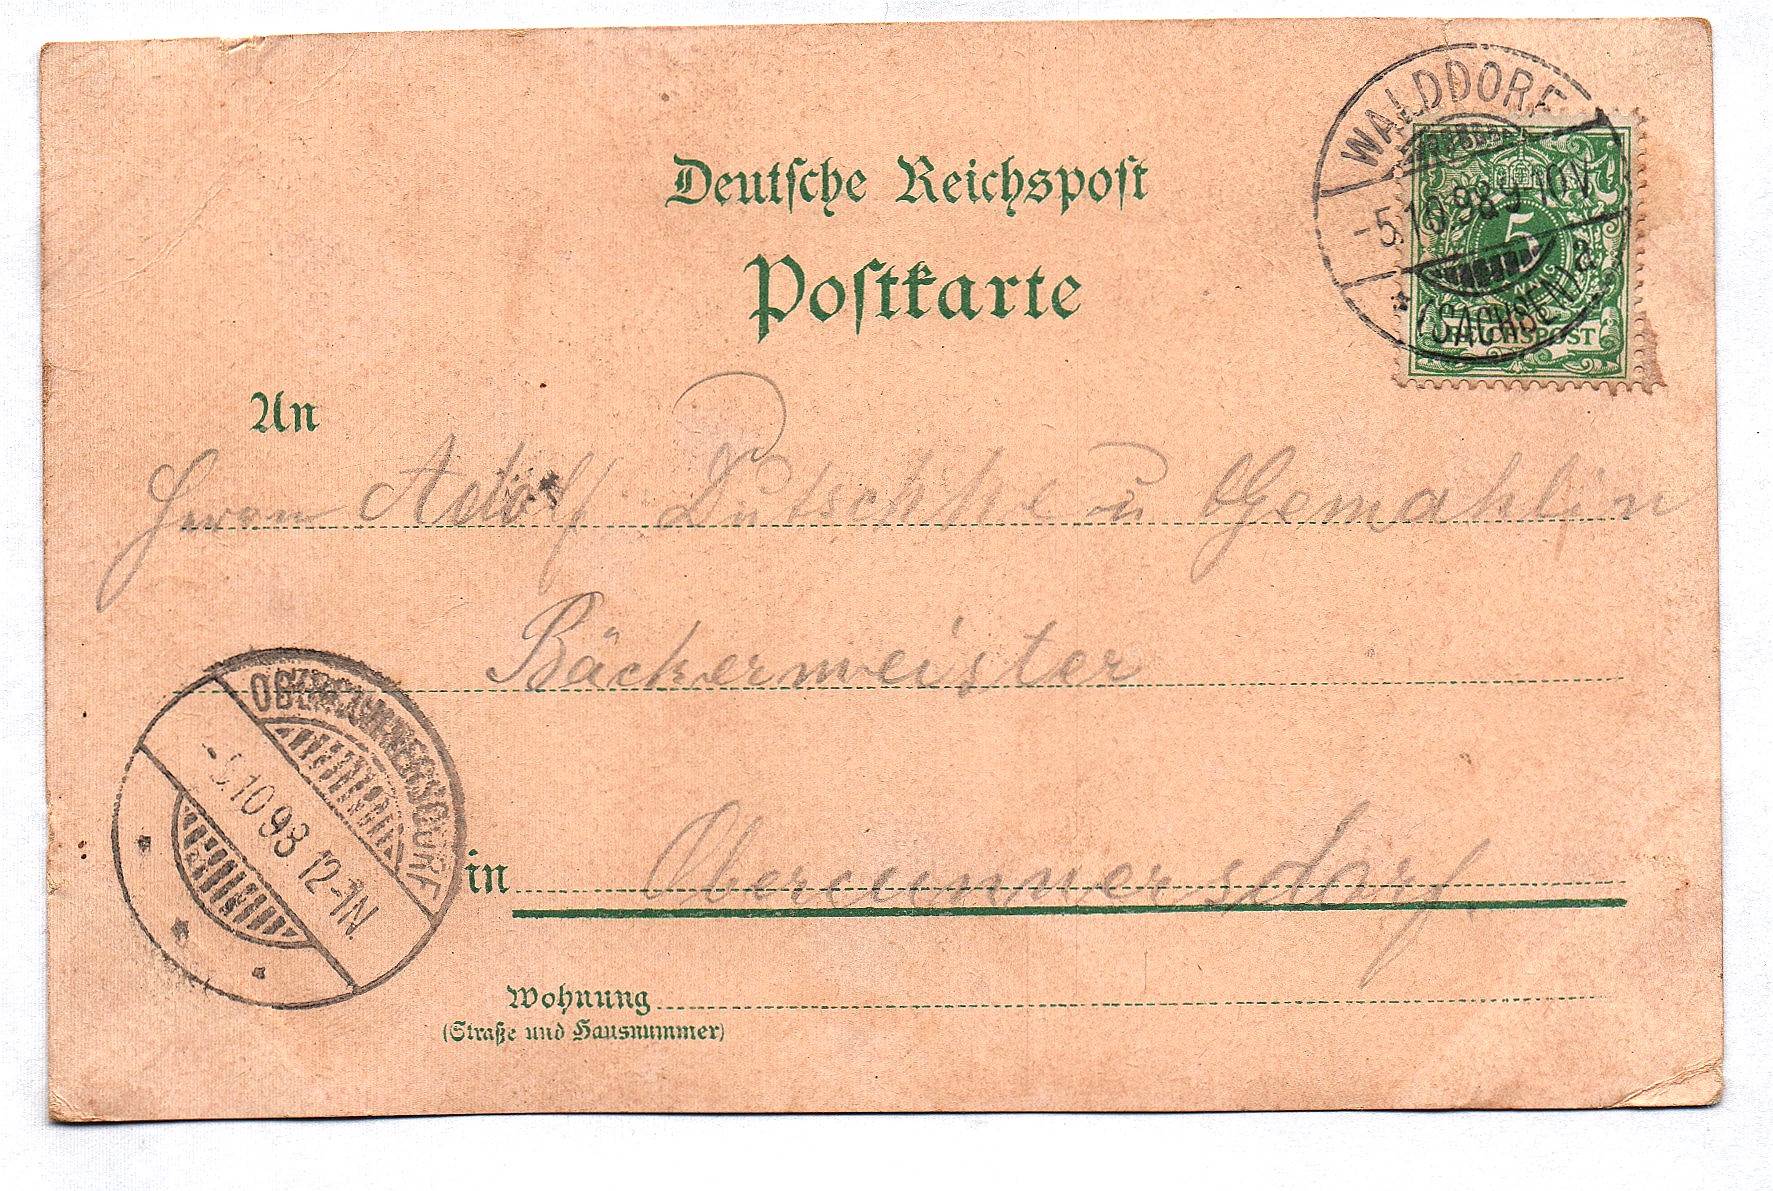 Deutsche Reichspost
Postkarte
WALDDORF
-5.10.98.9-10V.
a
* (SACHSEN)
5
REICHSPOST
An
Herrn Adolf Dutschke u Gemahlin
Bäckermeister
in Obercunnersdorf.
OBERCUNNERSDORF
-5.10 98 12-1N.
Wohnung
(Straße und Hausnummer)